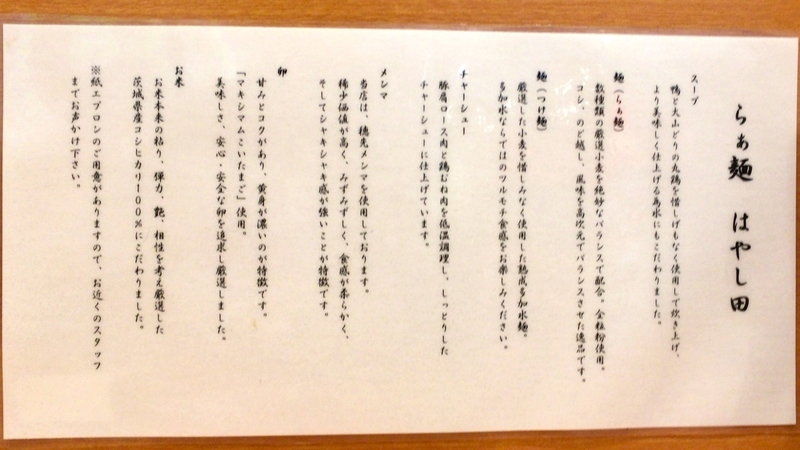 らぁ麺 はやし田
スープ
鴨と大山どりの丸鶏を惜しげもなく使用して炊き上げ、
より美味しく仕上げる為水にもこだわりました。
麺（らぁ麺）
数種類の厳選小麦を絶妙なバランスで配合。全粒粉使用。
コシ、のど越し、風味を高次元でバランスさせた逸品です。
麺（つけ麺）
厳選した小麦を惜しみなく使用した熟成多加水麺。
多加水ならではのツルモチ食感をお楽しみください。
チャーシュー
豚肩ロース肉と鶏むね肉を低温調理し、しっとりした
チャーシューに仕上げています。
メンマ
当店は、穂先メンマを使用しております。
稀少価値が高く、みずみずしく、食感が柔らかく、
そしてシャキシャキ感が強いことが特徴です。
卵
甘みとコクがあり、黄身が濃いのが特徴です。
「マキシマムこいたまご」使用。
美味しさ、安心・安全な卵を追求し厳選しました。
お米
お米本来の粘り、弾力、艶、相性を考え厳選した
茨城県産コシヒカリ１００％にこだわりました。
※紙エプロンのご用意がありますので、お近くのスタッフ
までお声かけ下さい。